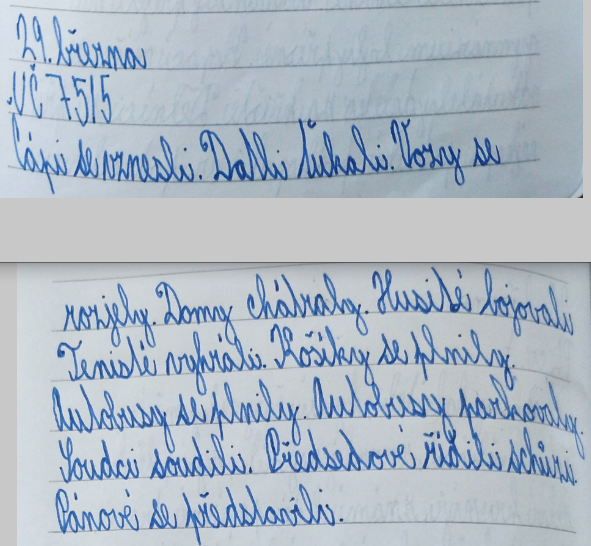 29. března
UČ 75/5
Čápi se vznesli. Datli ťukali. Vozy se
rozjely. Domy chátraly. Husité bojovali
Tenisté vyhráli. Košíky se plnily.
Autobusy se plnily. Autobusy parkovaly.
Soudci soudili. Předsedové řídili schůzi.
Pánové se představili.